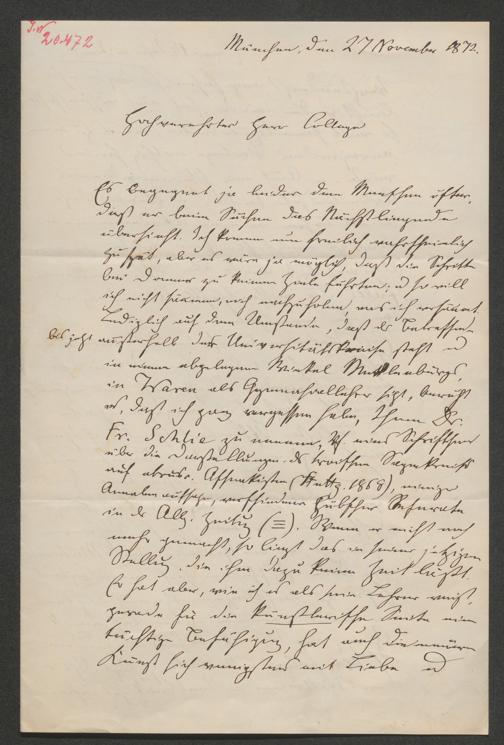 I.N 20.472
München, den 27 November 1872.
Hochverehrter Herr College
Es begegnet ja leider dem Menschen öfter,
daß er beim Suchen das Nächstliegende
übersieht. Ich komme nun freilich wahrscheinlich
zu spät, aber es wäre ja möglich, daß die Schritte
bei Donner zu keinem Ziele führten; u so will
ich nicht säumen, noch nachzuholen, was ich versäumt.
Lediglich auf dem Umstande, daß der Betreffende
bis jetzt außerhalb der Universitätskreise steht u
in einem abgelegenen Winkel Mecklenburgs,
in Waren als Gymnasiallehrer sitzt, beruht
es, daß ich ganz vergessen habe, Ihnen Dr.
Fr. Schlie zu nennen, der eine Schrift
über die Darstellungen des troischen Sagenkreises
auf etrusk. Aschenkisten (Stuttg. 1868), einige
Annalenaufsätze, verschiedene hübsche Referate
in der Allg. Zeitung (≡). Wenn er nicht noch
mehr gemacht, so liegt das in seiner jetzigen
Stellung, die ihm dazu keine Zeit läßt.
Er hat aber, wie ich es als sein Lehrer weiß,
gerade für die künstlerische Seite eine
tüchtige Befähigung, hat auch die neuere
Kunst sich wenigstens mit Liebe u